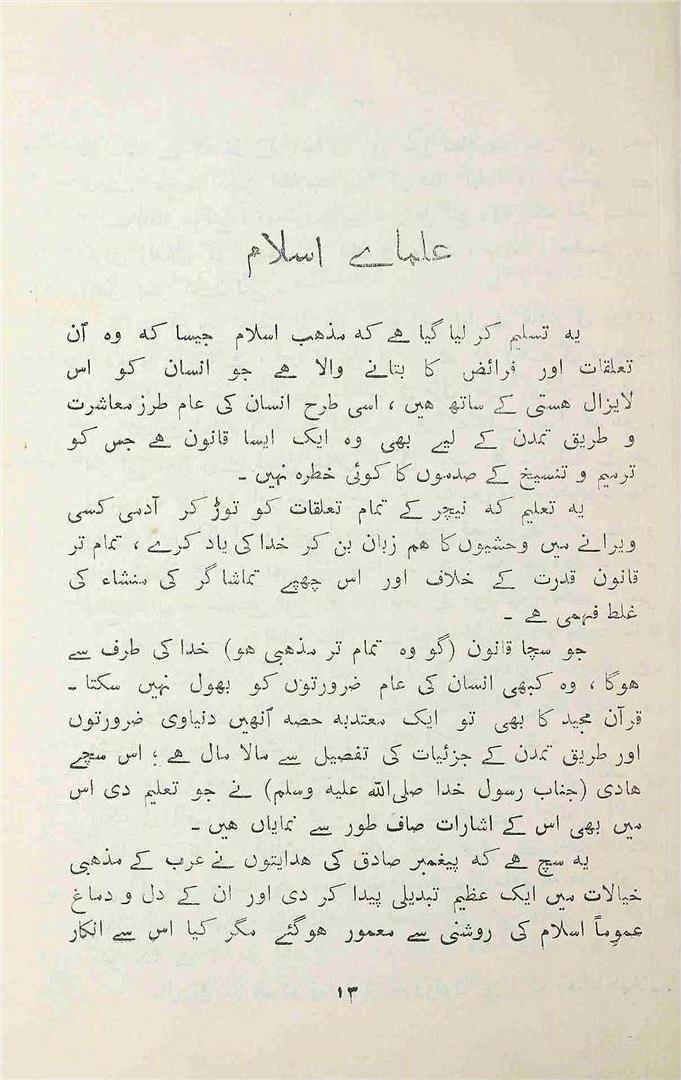 علماے اسلام
یہ تسلیم کر لیا گیا ہے کہ مذہب اسلام جیسا کہ وہ اُن
تعلقات اور فرائض کا بتانے والا ہے جو انسان کو اس
لایزال ہستی کے ساتھ ہیں ، اسی طرح انسان کی عام طرز معاشرت
و طریق تمدن کے لیے بھی وہ ایک ایسا قانون ہے جس کو
ترمیم و تنسیخ کے صدموں کا کوئی خطرہ نہیں ۔
یہ تعلیم کہ نیچر کے تمام تعلقات کو توڑ کر آدمی کسی
ویرانے میں وحشیوں کا ہم زبان بن کر خدا کی یاد کرے ، تمام تر
قانون قدرت کے خلاف اور اس چھپے تماشاگر کی منشاء کی
غلط فہمی ہے ۔
جو سچا قانون (گو وہ تمام تر مذہبی ہو) خدا کی طرف سے
ہوگا ، وہ کبھی انسان کی عام ضرورتوں کو بھول نہیں سکتا ۔
قرآن مجید کا بھی تو ایک معتدبہ حصہ اُنھیں دنیاوی ضرورتوں
اور طریق تمدن کے جزئیات کی تفصیل سے مالا مال ہے ؛ اس سچے
ہادی (جناب رسول خدا صلی اللہ علیہ وسلم) نے جو تعلیم دی اس
میں بھی اس کے اشارات صاف طور سے نمایاں ہیں ۔
یہ سچ ہے کہ پیغمبر صادق کی ہدایتوں نے عرب کے مذہبی
خیالات میں ایک عظیم تبدیلی پیدا کر دی اور ان کے دل و دماغ
عموماً اسلام کی روشنی سے معمور ہوگئے مگر کیا اس سے انکار
۱۳